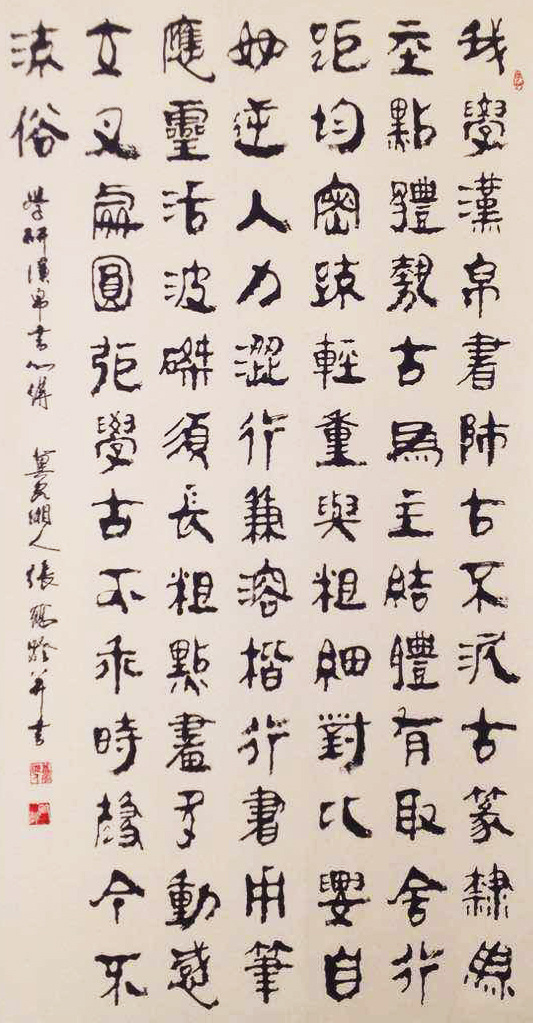 我學漢帛書師古不泥古篆隸
點體勢古為主結體有取舍行
距均密疏輕重與粗細對比要自
如逆入力澀行兼溶楷行書用筆
應靈活波磔須長粗點畫多動感
叉處圓弧學古不乖時今不
流俗
學研漢帛書心得 湖人張并書